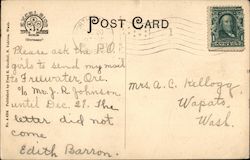 POST CARD
Please ask the P.O.
girls to send my mail
to Freewater, Ore.
c/o Mr. J. R. Johnson
until Dec. 29. The
letter did not
come
Edith Barron.
Mrs. A. C. Kellogg,
Wapato,
Wash.